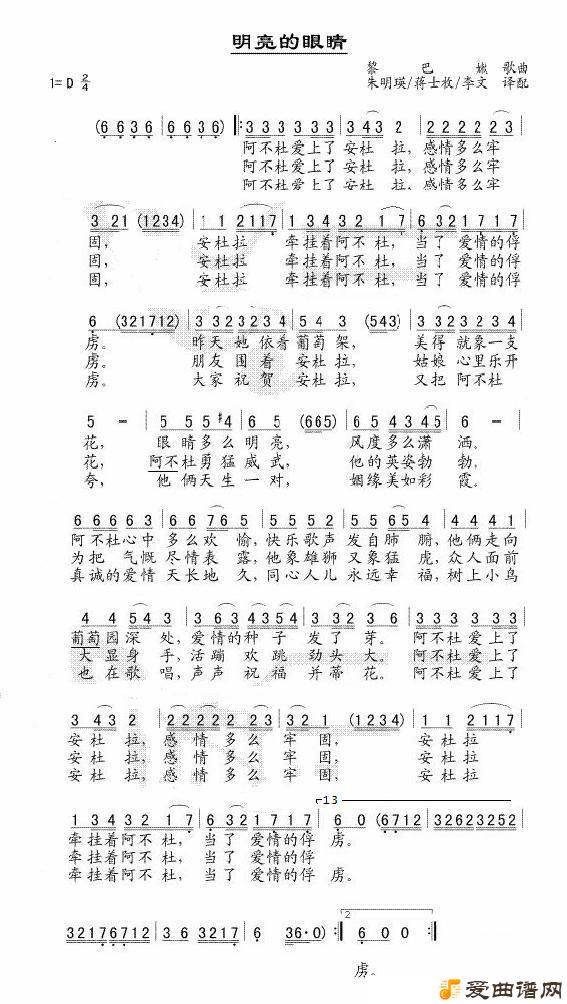 明亮的眼睛
黎巴嫩 歌曲
1=D 2/4 朱明瑛/蒋士枚/李文 译配
(6 6 3 6 | 6 6 3 6) |: 3 3 3 3 3 3 | 3 4 3 2 | 2 2 2 2 2 3 |
阿不杜爱上了 安杜 拉，感情多么牢
阿不杜爱上了 安杜 拉，感情多么牢
阿不杜爱上了 安杜 拉，感情多么牢
3 2 1 (1 2 3 4) | 1 1 2 1 1 7 | 1 3 4 3 2 1 7 | 6 3 2 1 7 1 7 |
固， 安杜拉 牵挂着阿不 杜，当了 爱情的俘
固， 安杜拉 牵挂着阿不 杜，当了 爱情的俘
固， 安杜拉 牵挂着阿不 杜，当了 爱情的俘
6 (3 2 1 7 1 2) | 3 3 2 3 3 2 3 4 | 5 4 3 (5 4 3) | 3 3 2 3 2 3 4 |
虏。 昨天 她 依着 葡萄 架， 美得 就象一支
虏。 朋友 围着 安杜 拉， 姑娘 心里乐开
虏。 大家 祝贺 安杜 拉， 又把 阿不杜
5 - | 5 5 5 #4 | 6 5 (6 6 5) | 6 5 4 3 4 5 | 6 - |
花， 眼睛多么 明亮， 风度多么潇 洒。
花， 阿不杜勇猛 威武， 他的 英姿勃 勃，
夸， 他俩天生 一对， 姻缘 美如彩 霞。
6 6 6 6 | 6 6 7 6 5 | 5 5 5 5 | 5 5 6 5 4 | 3 3 3 3 |
阿不杜心中 多么欢 愉，快乐歌声 发自肺 腑，他俩走向
为把 气慨 尽情表 露，他象雄狮 又象猛 虎，众人面前
真诚的爱情 天长地 久，同心人儿 永远幸 福，树上小鸟
4 4 5 4 3 | 2 2 2 2 3 | 3 2 1 7 6 | 3 3 3 3 3 3 |
葡萄园深 处，爱情的种 子 发了 芽。阿不杜爱上了
大显身 手，活蹦 欢跳 劲头 大。阿不杜爱上了
也在歌 唱，声声 祝福 并蒂 花。阿不杜爱上了
3 4 3 2 | 2 2 2 2 2 2 3 | 3 2 1 (1 2 3 4) | 1 1 2 1 1 7 |
安杜 拉，感情多么 牢固， 安杜拉
安杜 拉，感情多么 牢固， 安杜拉
安杜 拉，感情多么 牢固， 安杜拉
13
1 3 4 3 2 1 7 | 6 3 2 1 7 1 7 | 6 0 (6 7 1 2 | 3 2 6 2 3 2 5 2 |
牵挂着阿不 杜，当了 爱情的俘 虏。
牵挂着阿不 杜，当了 爱情的俘
牵挂着阿不 杜，当了 爱情的俘
3 2 1 7 6 7 1 2 | 3 4 3 2 1 7 | 6 3 6·0) :| 2 6 0 0 :|
虏。
爱曲谱网